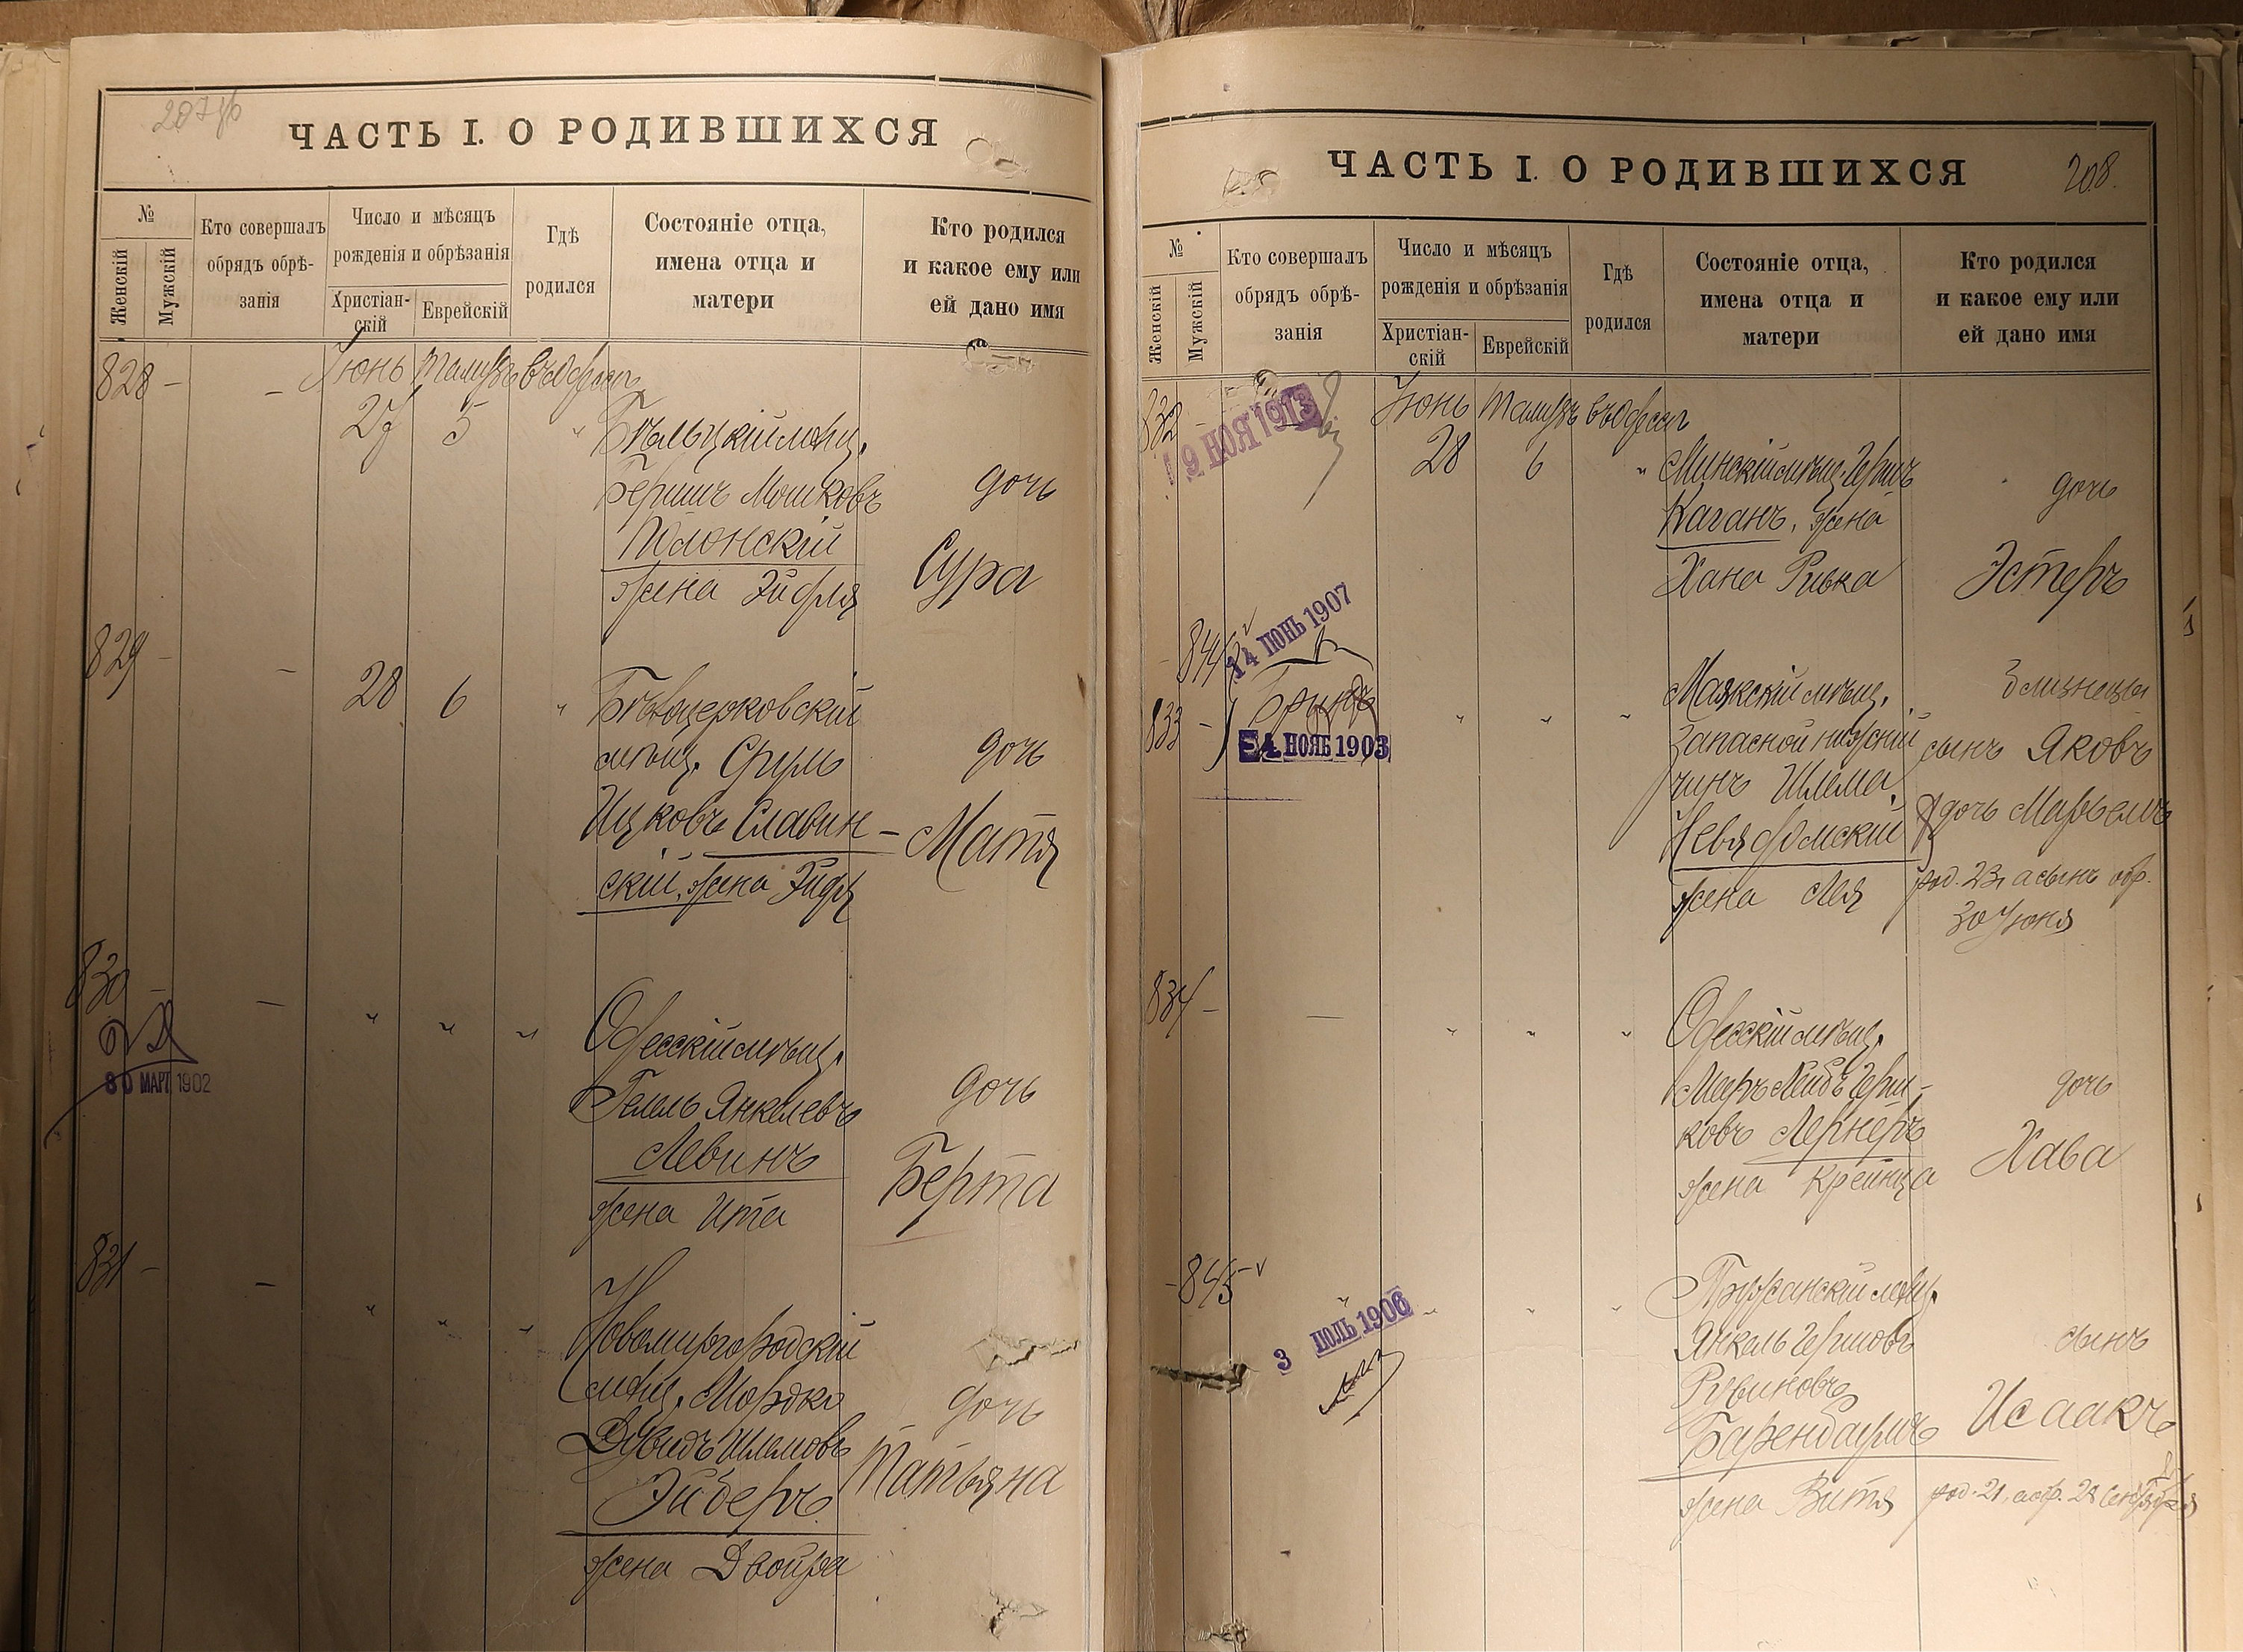 ЧАСТЬ I. О РОДИВШИХСЯ
№
Женскій
Мужскій
Кто совершалъ
обрядъ обрѣ-
занія
Число и мѣсяцъ
рожденія и обрѣзанія
Христіан-
скій
Еврейскій
Гдѣ
родился
Состояніе отца,
имена отца и
матери
Кто родился
и какое ему или
ей дано имя
828 – – Іюнь Тамузъ въ Одессѣ
27 5 "
Бѣльцкій мѣщ.
Бершъ Мошковъ
Полонскій
жена Эйдля
дочь
Сура
829 – – 28 6 "
Бѣлоцерковскій
мѣщ. Срулъ
Ицковъ Славин-
скій, жена
дочь
Матя
830 – – " " "
30 МАР. 1902
Одесскій мѣщ.
Янкелевъ
Левинъ
жена Ита
дочь
Берта
831 – – " " "
Новомиргородскій
мѣщ. Мордко
Дувидъ Шлемовъ
Эйдберъ
жена Двойра
дочь
Татьяна
ЧАСТЬ I. О РОДИВШИХСЯ
208.
№
Женскій
Мужскій
Кто совершалъ
обрядъ обрѣ-
занія
Число и мѣсяцъ
рожденія и обрѣзанія
Христіан-
скій
Еврейскій
Гдѣ
родился
Состояніе отца,
имена отца и
матери
Кто родился
и какое ему или
ей дано имя
832 – Іюнь Тамузъ въ Одессѣ
9 НОЯ 1913
28 6 "
Минскій мѣщ. Гершъ
Каганъ, жена
Хана Ривка
дочь
Эстеръ
– 844
14 ІЮНЬ 1907
833 – Бринъ " " "
4 НОЯБ 1903
Маякскій мѣщ.
запасной нижній
чинъ Шлема
жена Лея
близнецы
сынъ Яковъ
дочь
род. 23, а сынъ обр.
30 Іюня
834 – – " " "
Одесскій мѣщ.
Мееръ Лейбъ Герш-
ковъ Лернеръ
жена Крейнца
дочь
Хава
– 845 " " " "
3 ІЮЛЬ 1906
Пружанскій мѣщ.
Янкель Гершовъ
Рувиновъ
Баренбаумъ
жена Витя
сынъ
Исаакъ
род. 21, а обр. 28 Сентября